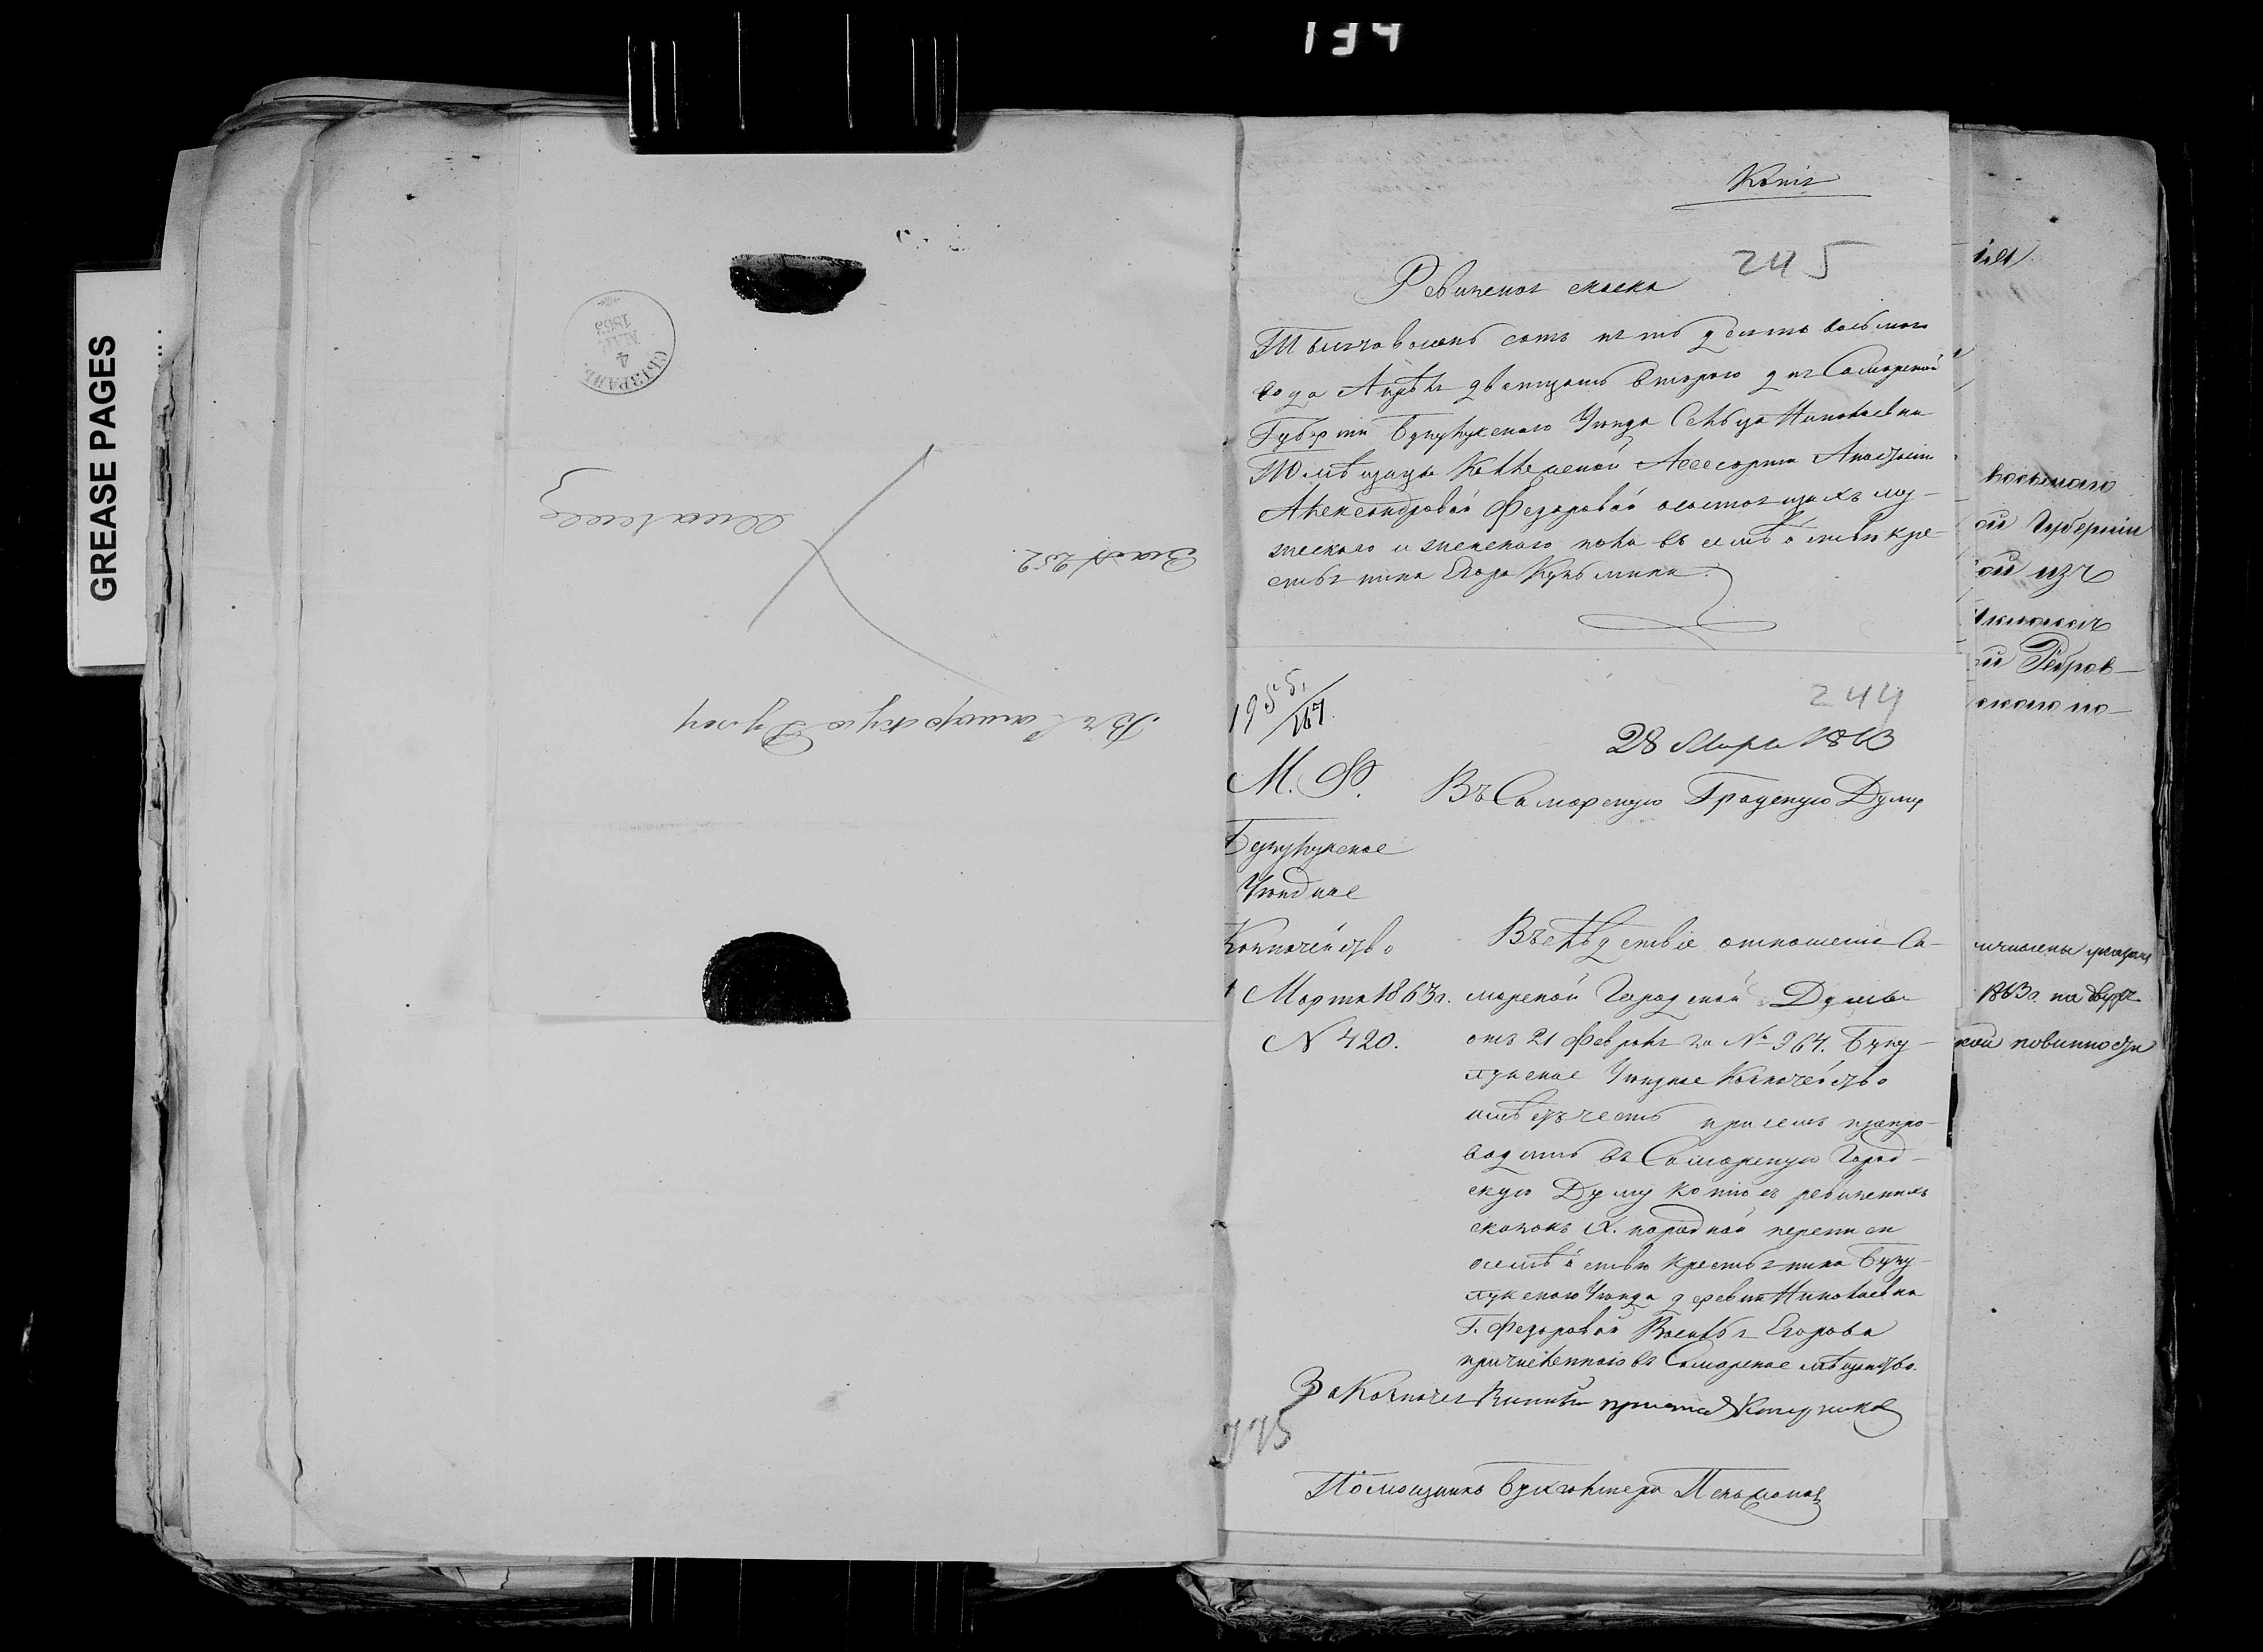 134
GREASE PAGES
СЫЗРАНЬ
4
МАР
1863
Въ Самарскую Думу
За № 252.
Копія
245
Ревизская сказка
Тысяча восемь сотъ пять десятъ восьмаго
года Апрѣля дватцать втораго дня Самарской
Губерніи Бузулукскаго Уѣзда Сельца Николаевки
Помѣщицы Коллежской Асесорши Анастасіи
Александровой Федоровой о состоящихъ му-
жескаго и женскаго пола въ семѣйствѣ кре-
стьянина Егора Кузьмина.
244
1955/167.
28 Марта 1863
М. Ф.
Въ Самарскую Градскую Думу
Бузулукское
Уѣздное
Казначейство
Марта 1863 г.
N 420.
Вслѣдствіе отношенія Са-
марской Городской Думы
отъ 21 Февраля за № 364. Бузу-
лукское Уѣздное Казначейство
имѣетъ честь при семъ препро-
водить въ Самарскую Город-
скую Думу копію съ ревизскихъ
сказокъ X. народной переписи
о семѣйствѣ крестьянина Бузу-
лукскаго Уѣзда деревни Николаевки
Г. Федоровой Василья Егорова
причисленнаго въ Самарское мѣщанство.
За Казначея
775
Помощникъ Бухгалтера
восьмаго
ой Губерніи
ой изъ
ской повинности
1863 г. на